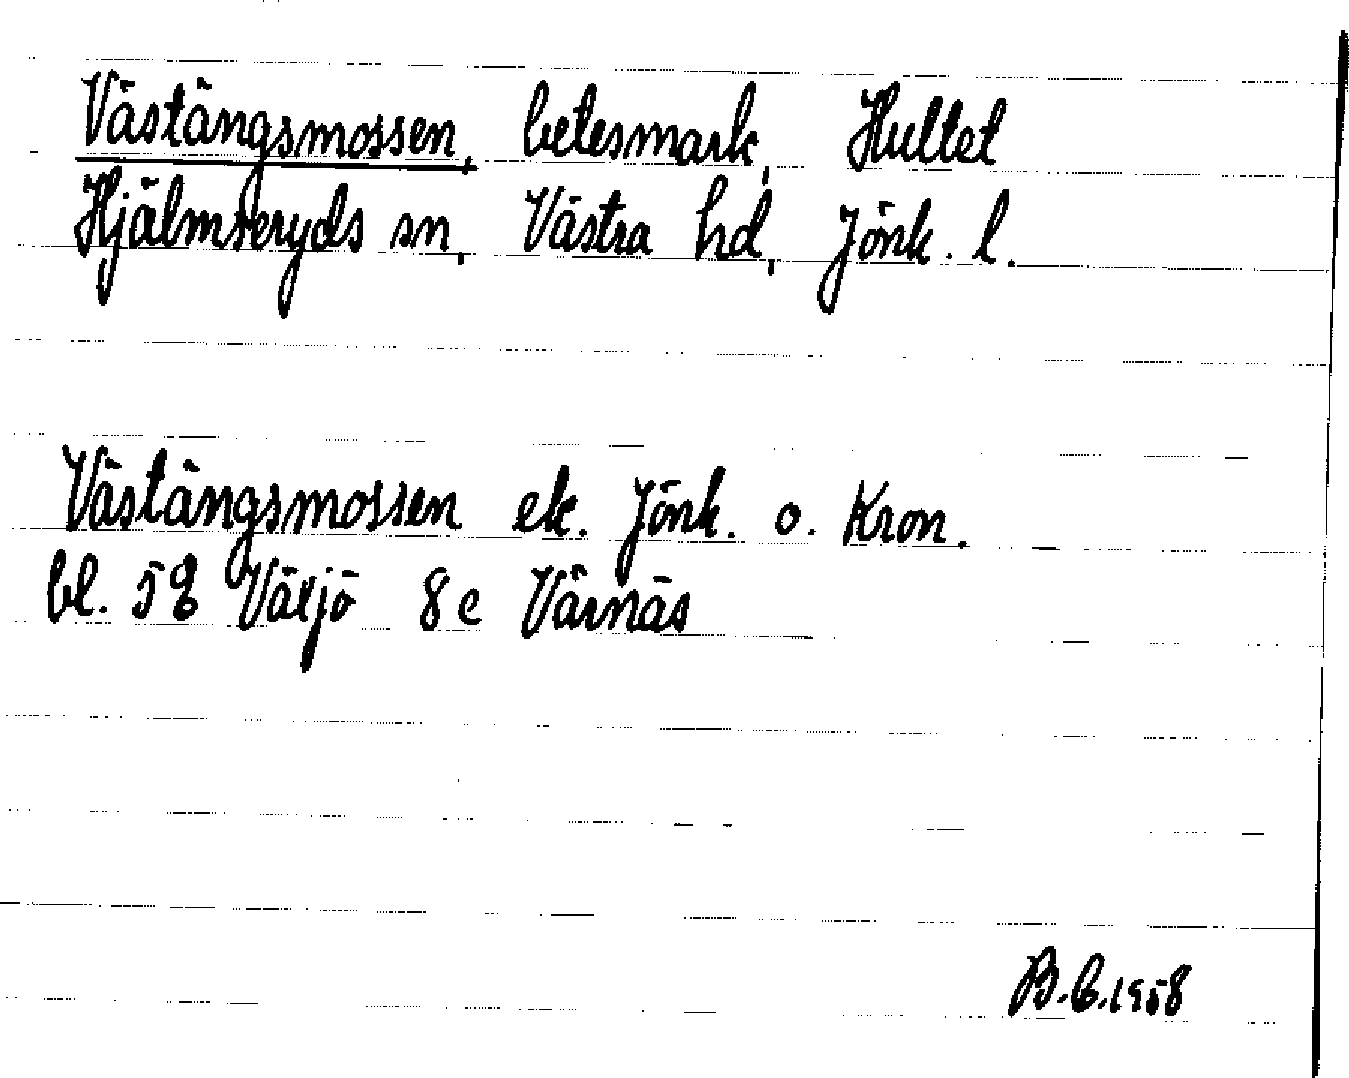 Västängsmossen, betesmark, Hultet
Hjälmseryds sn, Västra hd, Jönk. l.
Västängsmossen ek. Jönk. o. Kron.
bl. 58 Växjö 8c Värnäs
B.C.1958